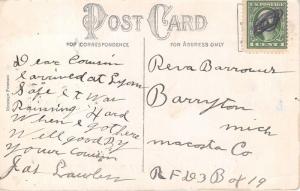 POST CARD
FOR CORRESPONDENCE
FOR ADDRESS ONLY
Dear Cousin
I arrived at Lyons
Safe it was
Raining Hard
When I got here
Well good By
your Cousin
Jas
Reva Barrows
Barryton
mich
macosta Co
RFD 3 Box 19